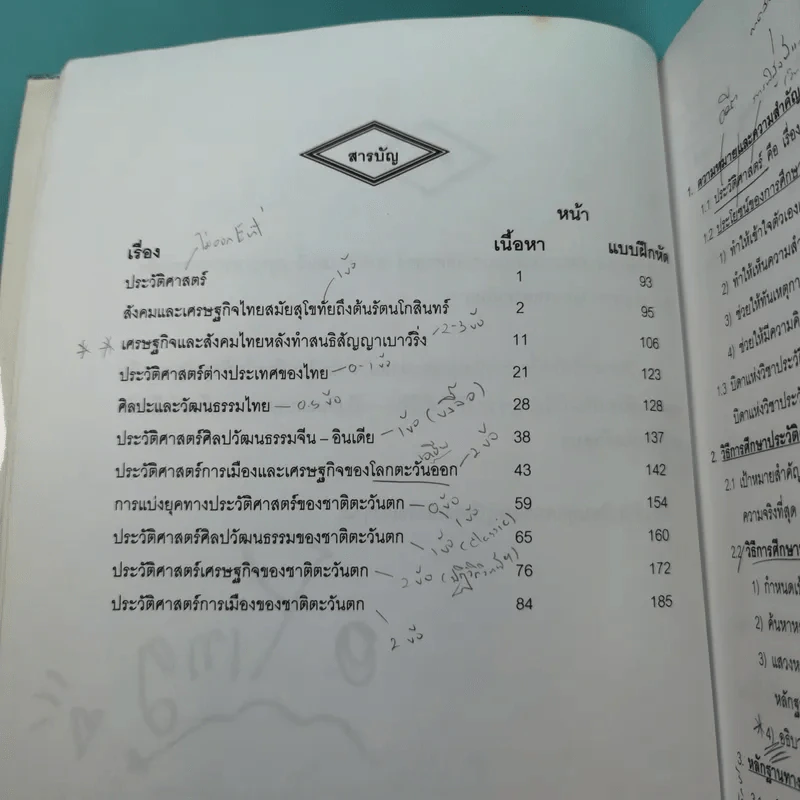 สารบัญ
หน้า
เรื่อง เนื้อหา แบบฝึกหัด
ประวัติศาสตร์ 1 93
1 ข้อ
สังคมและเศรษฐกิจไทยสมัยสุโขทัยถึงต้นรัตนโกสินทร์ 2 95
** เศรษฐกิจและสังคมไทยหลังทำสนธิสัญญาเบาว์ริ่ง - 2-3 ข้อ 11 106
ประวัติศาสตร์ต่างประเทศของไทย - 0-1 ข้อ 21 123
ศิลปะและวัฒนธรรมไทย - 0.5 ข้อ 28 128
ประวัติศาสตร์ศิลปวัฒนธรรมจีน – อินเดีย - 1 ข้อ 38 137
ประวัติศาสตร์การเมืองและเศรษฐกิจของโลกตะวันออก - 2 ข้อ 43 142
การแบ่งยุคทางประวัติศาสตร์ของชาติตะวันตก - 0 ข้อ 59 154
1 ข้อ
ประวัติศาสตร์ศิลปวัฒนธรรมของชาติตะวันตก - 1 ข้อ (classic) 65 160
ประวัติศาสตร์เศรษฐกิจของชาติตะวันตก - 2 ข้อ 76 172
ประวัติศาสตร์การเมืองของชาติตะวันตก 84 185
2 ข้อ
1. ความหมายและความสำคัญ
1.1 ประวัติศาสตร์ คือ เรื่อง
1.2 ประโยชน์ของการศึกษา
1) ทำให้เข้าใจตัวเอง
2) ทำให้เห็นความสำ
3) ช่วยให้ทันเหตุกา
4) ช่วยให้มีความคิ
1.3 บิดาแห่งวิชาประวัติ
บิดาแห่งวิชาประวั
2. วิธีการศึกษาประวัติ
2.1 เป้าหมายสำคัญ
ความจริงที่สุด
2.2 วิธีการศึกษา
1) กำหนดเ
2) ค้นหาห
3) แสวงห
หลักฐ
* 4) อธิบา
3. หลักฐานทาง